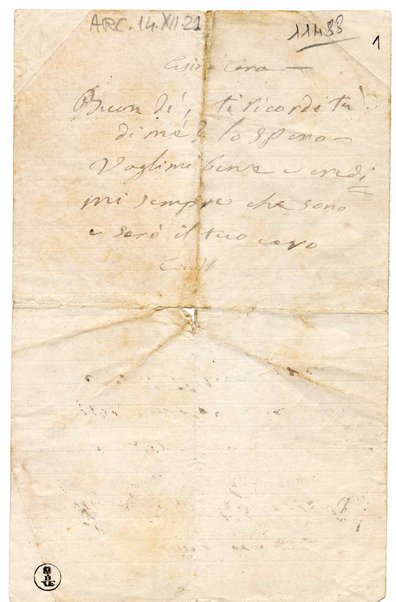 ARC. 14. XII. 21
11488
1
cara
Buon dì, ti ricordi tu
di me? lo spero
Voglimi bene e credi=
mi sempre che sono
e sarò il tuo caro